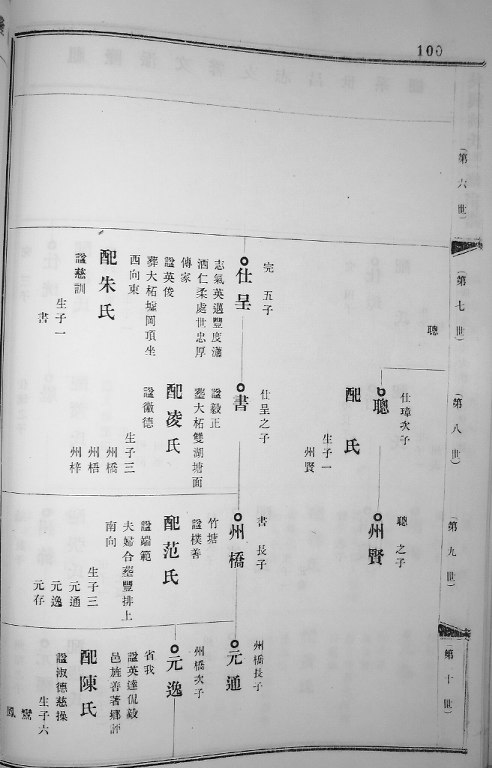 100
(第六世)
(第七世)
聰
完五子
仕呈
志氣英邁豐度瀟
洒仁柔處世忠厚
傳家
諡英俊
葬大柘墟岡項坐
西向東
配朱氏
諡慈訓
生子一
書
(第八世)
仕璋次子
聰
配氏
生子一
州賢
仕呈之子
書
諡毅正
塟大柘雙湖塘面
配凌氏
諡徽德
生子三
州橋
州梧
州梓
(第九世)
聰之子
州賢
書長子
州橋
竹塘
諡樸善
配范氏
諡端範
夫婦合塟豐排上
南向
生子三
元通
元逸
元存
(第十世)
州橋長子
元通
州橋次子
元逸
省我
諡英達侃毅
邑旌善著鄉評
配陳氏
諡淑德慈操
生子六
鸞
鳳